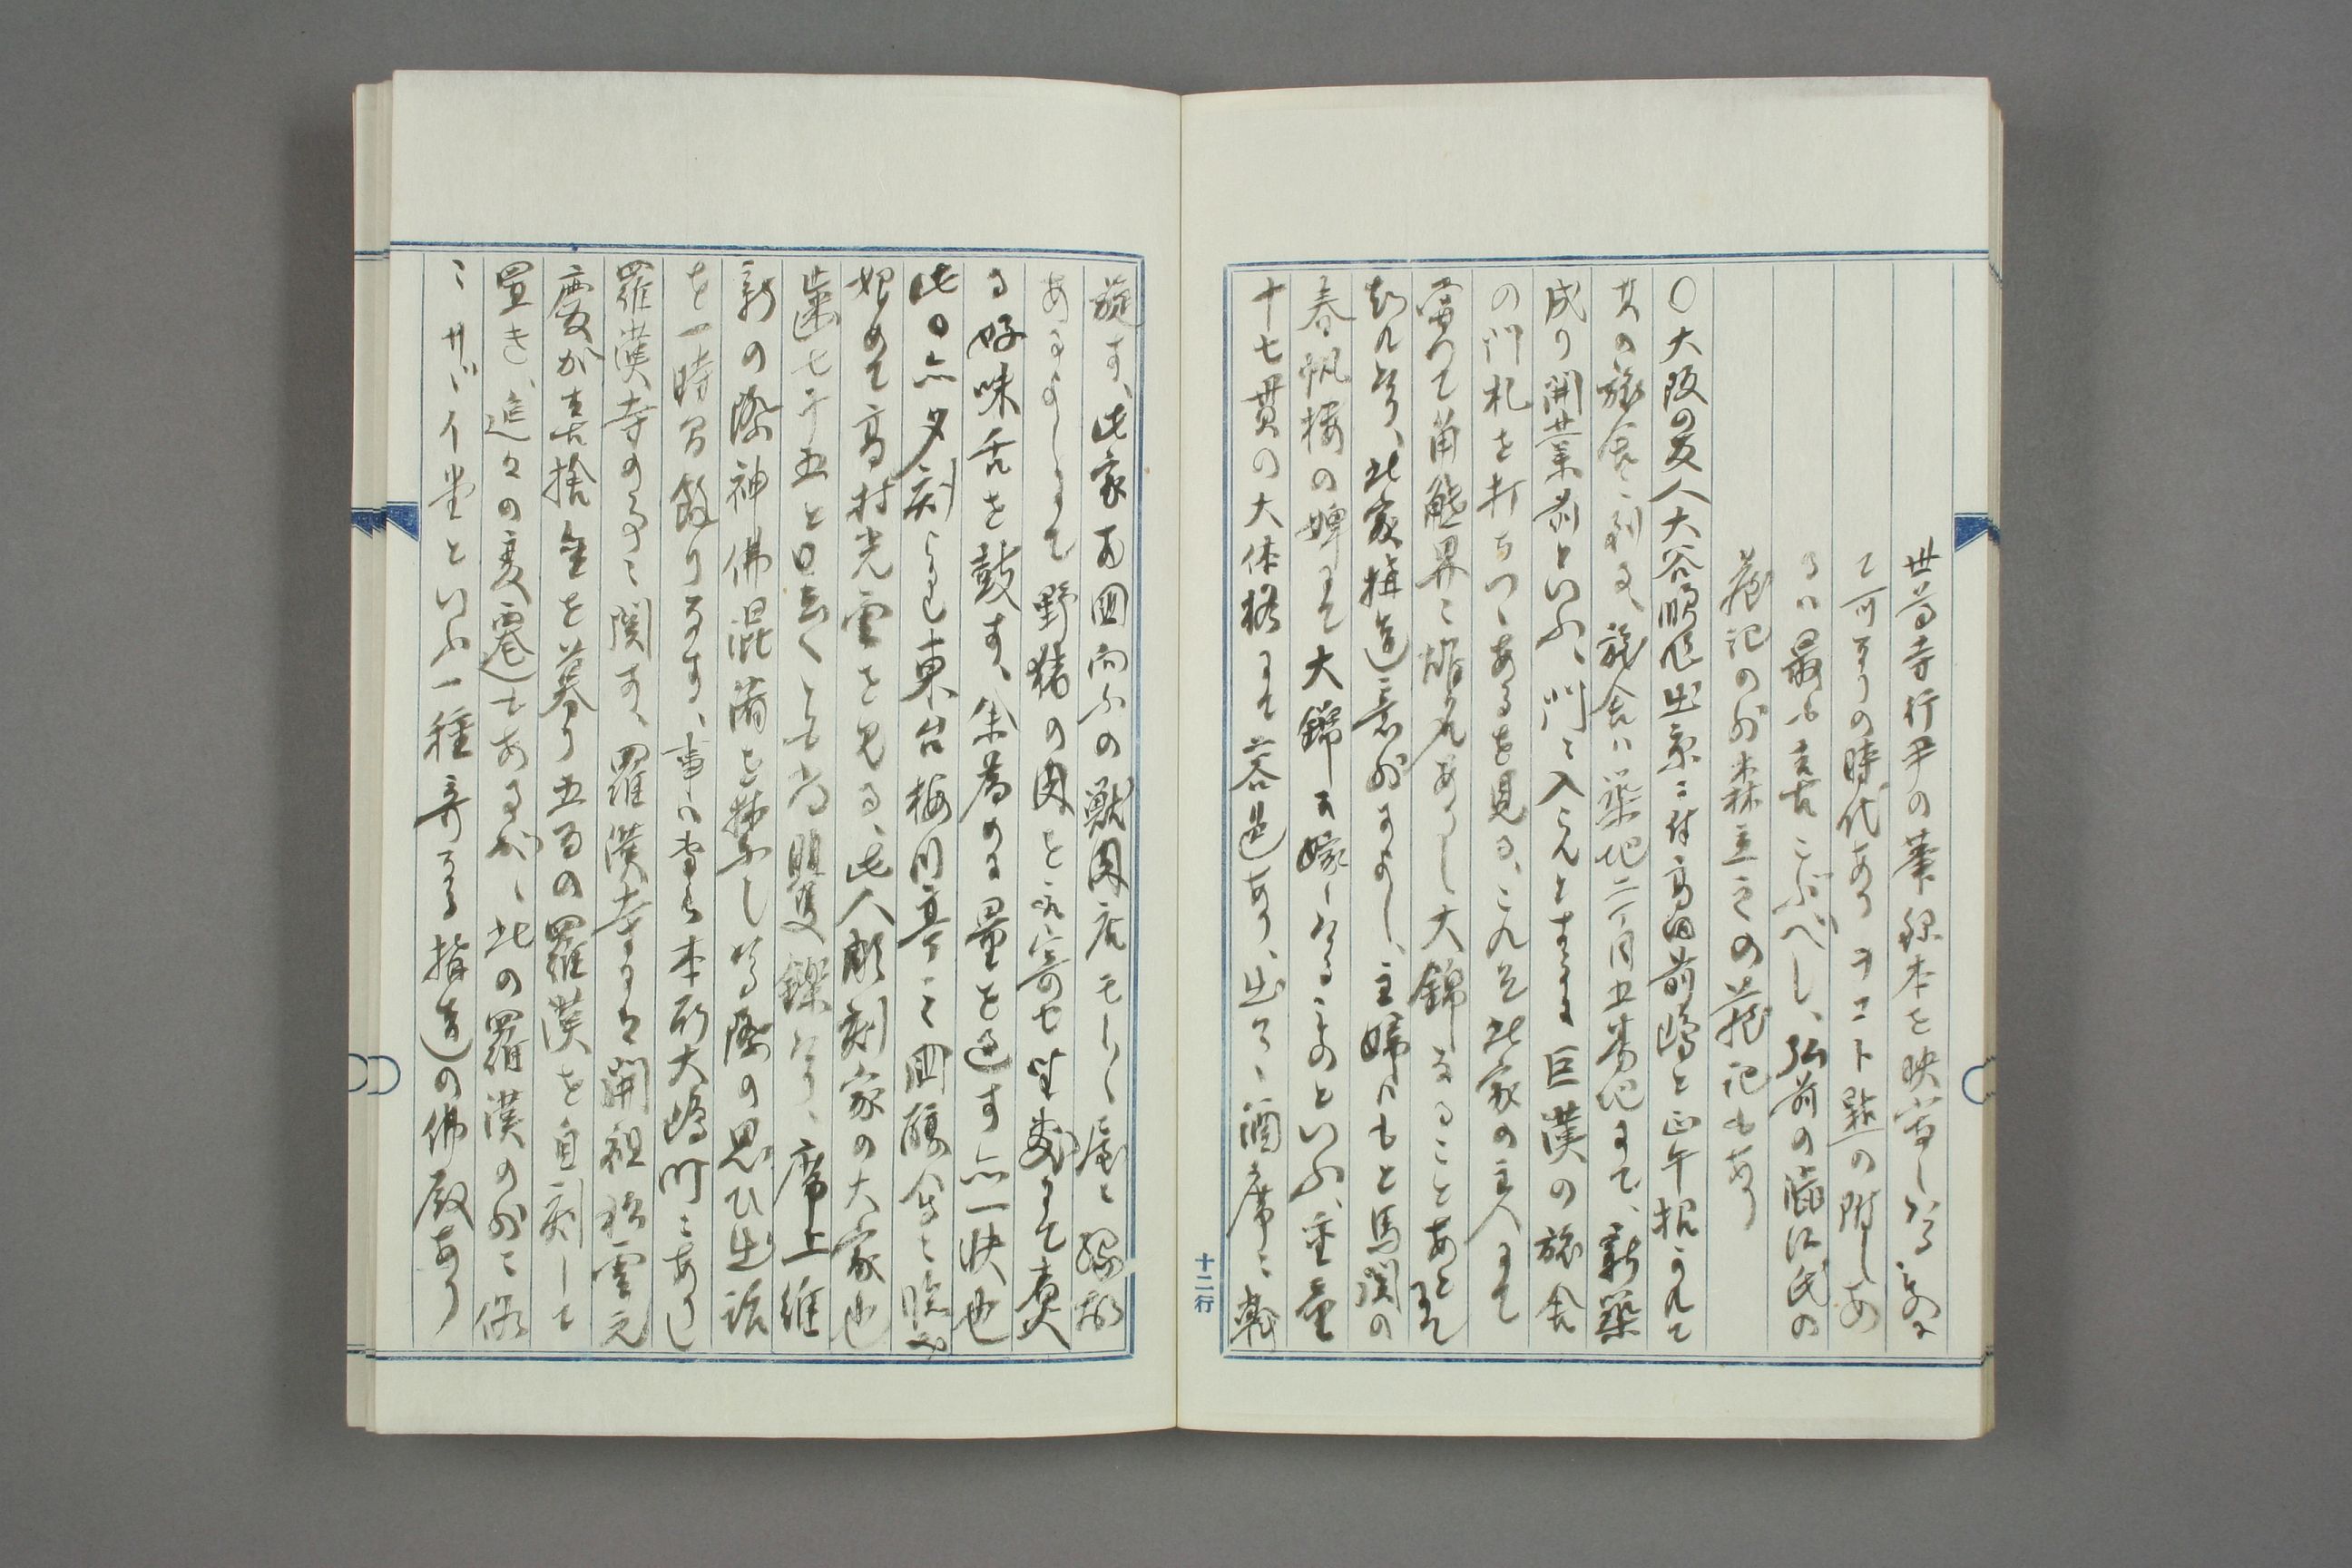 世尊寺行尹の筆録本を映写しける家に
て可なりの時代あり ヲコト點の附しあ
るハ最も喜こぶべし、弘前の澁江氏の
蔵記の外森立之の蔵記もあり
〇大阪の友人大谷順作出京ニ付高田前嶋と正午招かれて
其の旅舎ニ到る、旅舎ハ築地二丁目五番地にて、新築
成り開業前といふ、門ニ入らんとするに巨漢の旅舎
の門札を打ちつゝあるを見る、これぞ此家の主人にて
曽つて角觝界ニ雄名ありし大錦なることあとにて
知れり、此家構造意外によし、主婦ハもと馬関の
春帆楼の婢にて大錦に嫁しけるものといふ、重量
十七貫の大体格にて容色あり、出てゝ酒席ニ斡
旋す、此家両国向ふの獣肉店モヽンジ屋と縁故
あるよしにて野猪の肉を取寄せ坐敷にて煑
る好味舌を鼓す、余為めに量を過す亦一快也
此日亦夕刻よりして東台梅川亭ニ国醸会ニ臨み
始めて高村光雲を見る、此人彫刻家の大家也
歯七十五と日ふくとも尚矍鑠たり、席上維
新の際神佛混淆を禁ぜし当際の思ひ出話
を一時間餘りなす、事ハ専ら本所大嶋町ニありし
羅漢寺の事ニ関す、羅漢寺ハ開祖松雲元
慶が喜捨金を募り五百の羅漢を自刻して
置き、追々の変遷もあるが、此の羅漢の外ニ俗
ニサヾイ堂といふ一種奇なる構造の佛殿あり
十二行